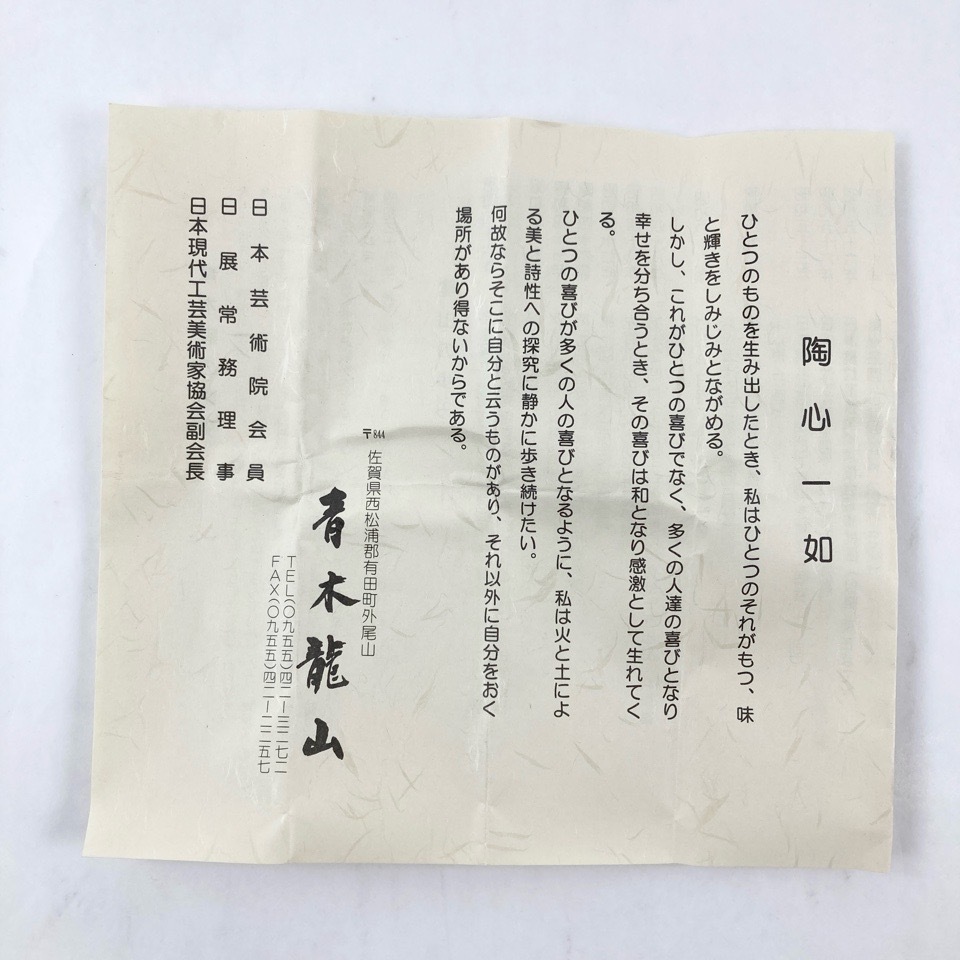 陶心一如
ひとつのものを生み出したとき、私はひとつのそれがもつ、味
と輝きをしみじみとながめる。
しかし、これがひとつの喜びでなく、多くの人達の喜びとなり
幸せを分ち合うとき、その喜びは和となり感激として生れてく
る。
ひとつの喜びが多くの人の喜びとなるように、私は火と土によ
る美と詩性への探究に静かに歩き続けたい。
何故ならそこに自分と云うものがあり、それ以外に自分をおく
場所があり得ないからである。
〒844 佐賀県西松浦郡有田町外尾山
青木龍山
TEL(〇九五五)四二ー三二七二
FAX(〇九五五)四二ー二二五七
日本芸術院会員
日展常務理事
日本現代工芸美術家協会副会長